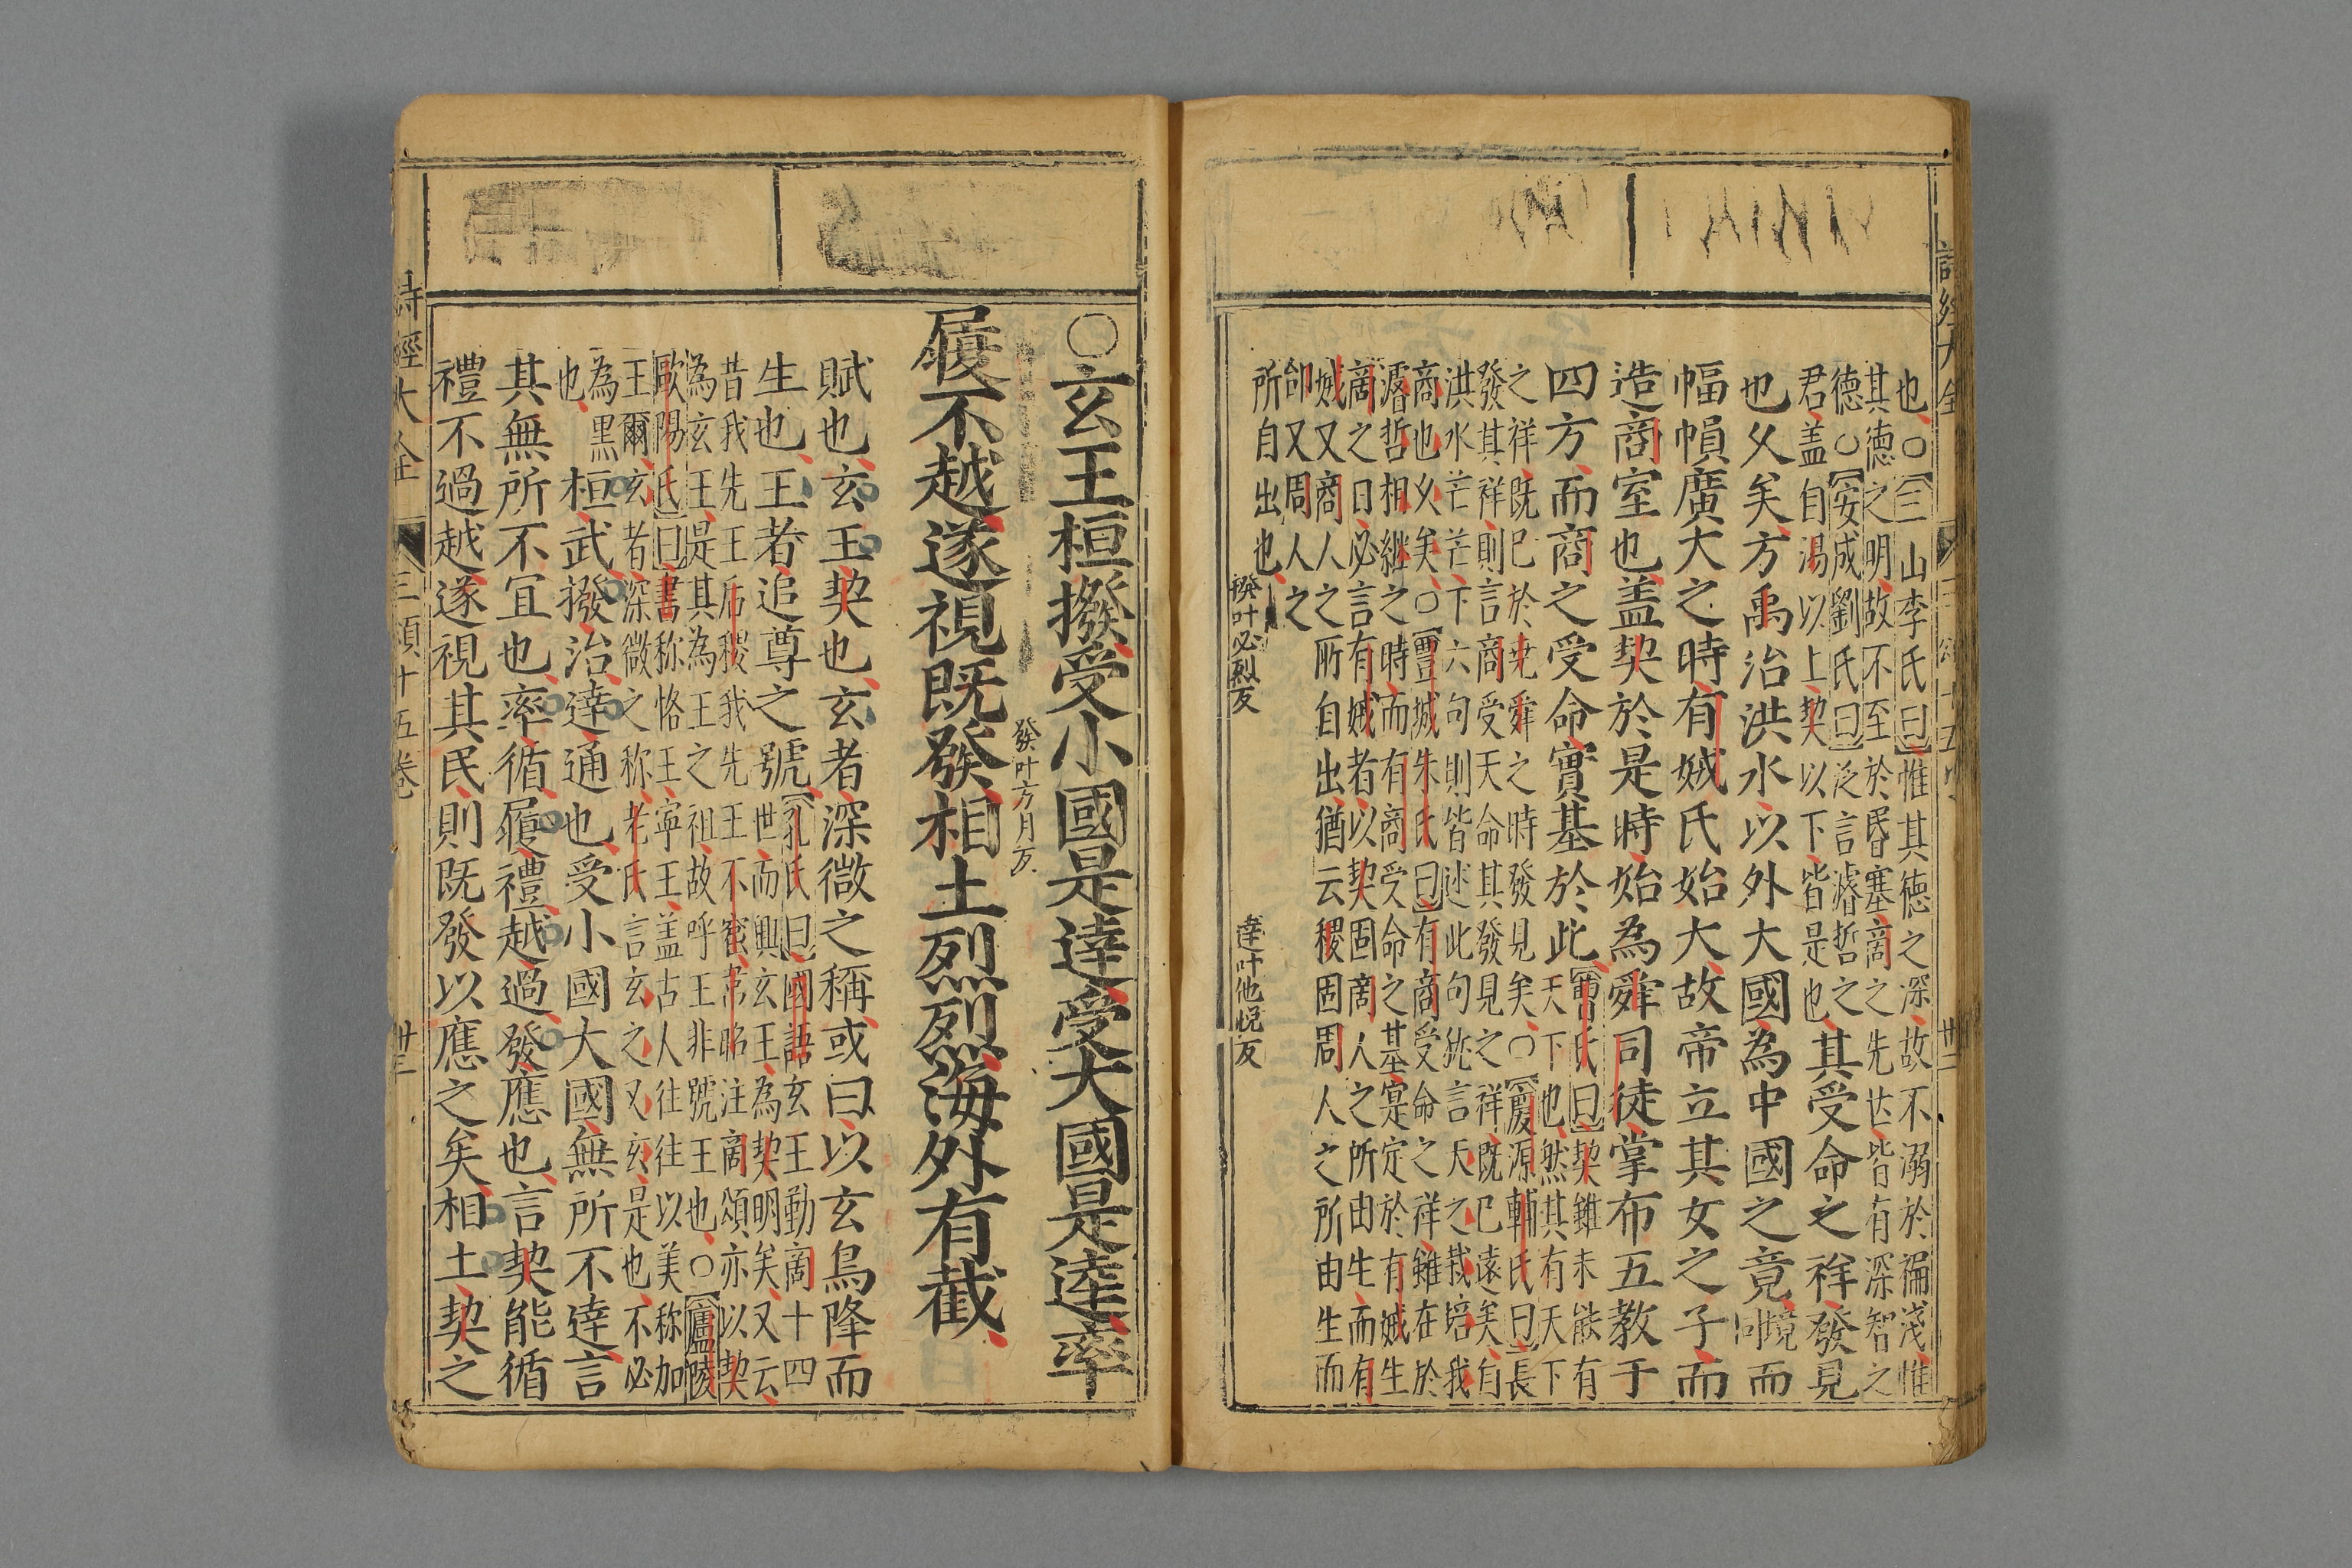 也○三山李氏曰惟其德之深故不溺於褊淺惟
其德之明故不至於昬塞商之先世皆有深智之
德○安成劉氏曰泛言濬哲之
君盖自湯以上契以下皆是也其受命之祥發見
也久矣方禹治洪水以外大國為中國之竟境同而
幅幀廣大之時有娀氏始大故帝立其女之子而
造商室也盖契於是時始為舜司徒掌布五教于
四方而商之受命實基於此曹氏曰契雖未能有
天下也然其有天下
之祥既已於尭舜之時發見矣○慶源輔氏曰長
發其祥則言商受天命其發見之祥既已遠矣自
洪水芒芒下六句則皆述此句犹言天之栽培我
商也乆矣○豐城朱氏曰有商受命之祥雖在於
濬哲相継之時而有商受命之基寔定於有娀生
商之日必言有娀者以契固商人之所由生而有
娀又商人之所自出猶云稷固周人之所由生而
郃又周人之
所自出也
撥叶必烈反
達叶他悦反
○玄王桓撥受小國是達受大國是達率
發叶方月反
履不越遂視既發相土烈烈海外有截
賦也玄王契也玄者深微之稱或曰以玄鳥降而
生也王者追尊之號孔氏曰國語玄王勤商十四
世而興玄王為契明矣又云
昔我先王后稷我先王不窋韋昭注商頌亦以契
為玄王是其為王之祖故呼王非號王也○廬陵
歐陽氏曰書称恪王寧王盖古人往往以美称加
王爾玄者深微之称老氏言玄之又玄是也不必
為黑
也桓武撥治達通也受小國大國無所不達言
其無所不宜也率循履禮越過發應也言契能循
禮不過越遂視其民則既發以應之矣相土契之
詩經大全
三頌十五卷
卅三